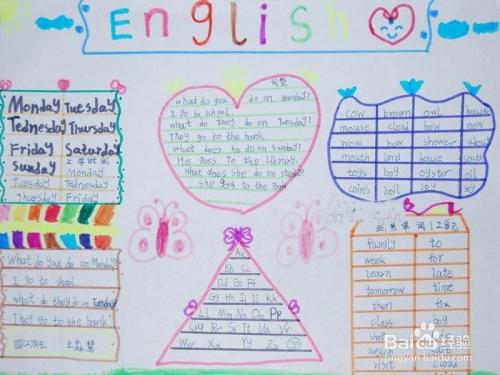 English
Monday Tuesday
Tednesday Thursday
Friday Saturday
Sunday 上学时间
Monday
Tuesday Tednesday
Thursday Friday
What do you do on Monday?
I go to school.
what do they do on Tuesday?
They go to the bank.
四(2)班
句型
what do you do on Monday?
I go to school.
what do they do on Tuesday?
They go to the bank.
What does he do on Sunday?
He goes to the library.
What does she do on
She goes to the
Aa
Bb Cc
Dd Ee Ff
Gg Hh Ii Jj Kk
Ll Mm Nn Oo Pp
Qq Rr Ss Tt Uu Vv
Ww Xx Yy Zz
cow brown owl house
mouse cloud how now
wow how shower about
mouth lord house south
toys boy oyster oil
coins boil joy soy
单词 1 2单元
family to
week for
learn late
tomorrow time
then fix
class boy
short
watch salt
visit cloud
Baidu经验
jingyan.baidu.com